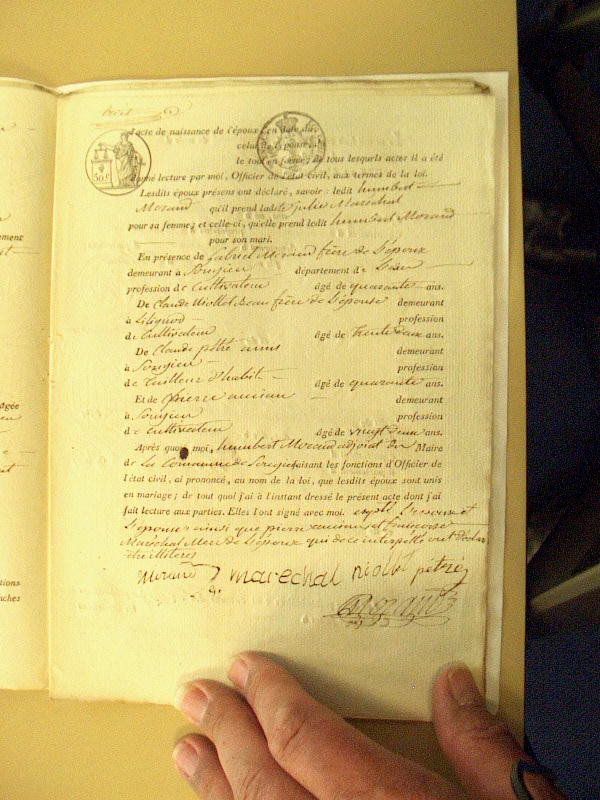 acte de naissance de l'époux, en date du
celui de l'épouse, du
le tout en forme; de tous lesquels actes il a été
donné lecture par moi, Officier de l'état civil, aux termes de la loi.
Lesdits époux présens ont déclaré, savoir : ledit humbert
Morand qu'il prend ladite julie Maréchal
pour sa femme; et celle-ci, qu'elle prend ledit humbert Morand
pour son mari.
En présence de gabriel Morand frère de l'époux
demeurant à Songieu département de L'ain
profession de Cultivateur âgé de quarante ans.
De Claude niollet Beau frère de l'épouse demeurant
à profession
de Cultivateur âgé de trente deux ans.
De Claude pétré amis demeurant
à Songieu profession
de tailleur d'habit âgé de quarante ans.
Et de pierre ancian demeurant
à Songieu profession
de cultivateur âgé de vingt deux ans.
Après quoi moi, humbert Morand adjoint du Maire
de La Commune de Songieu faisant les fonctions d'Officier de
l'état civil, ai prononcé, au nom de la loi, que lesdits époux sont unis
en mariage; de tout quoi j'ai à l'instant dressé le présent acte dont j'ai
fait lecture aux parties. Elles l'ont signé avec moi.
L'épouse ainsi que pierre ancian et
Maréchal Mère de L'époux qui de ce interpellé ont déclaré
être illitérés
morand maréchal niollet pétré
Morand
50 c
ement
âgée
tions
ches